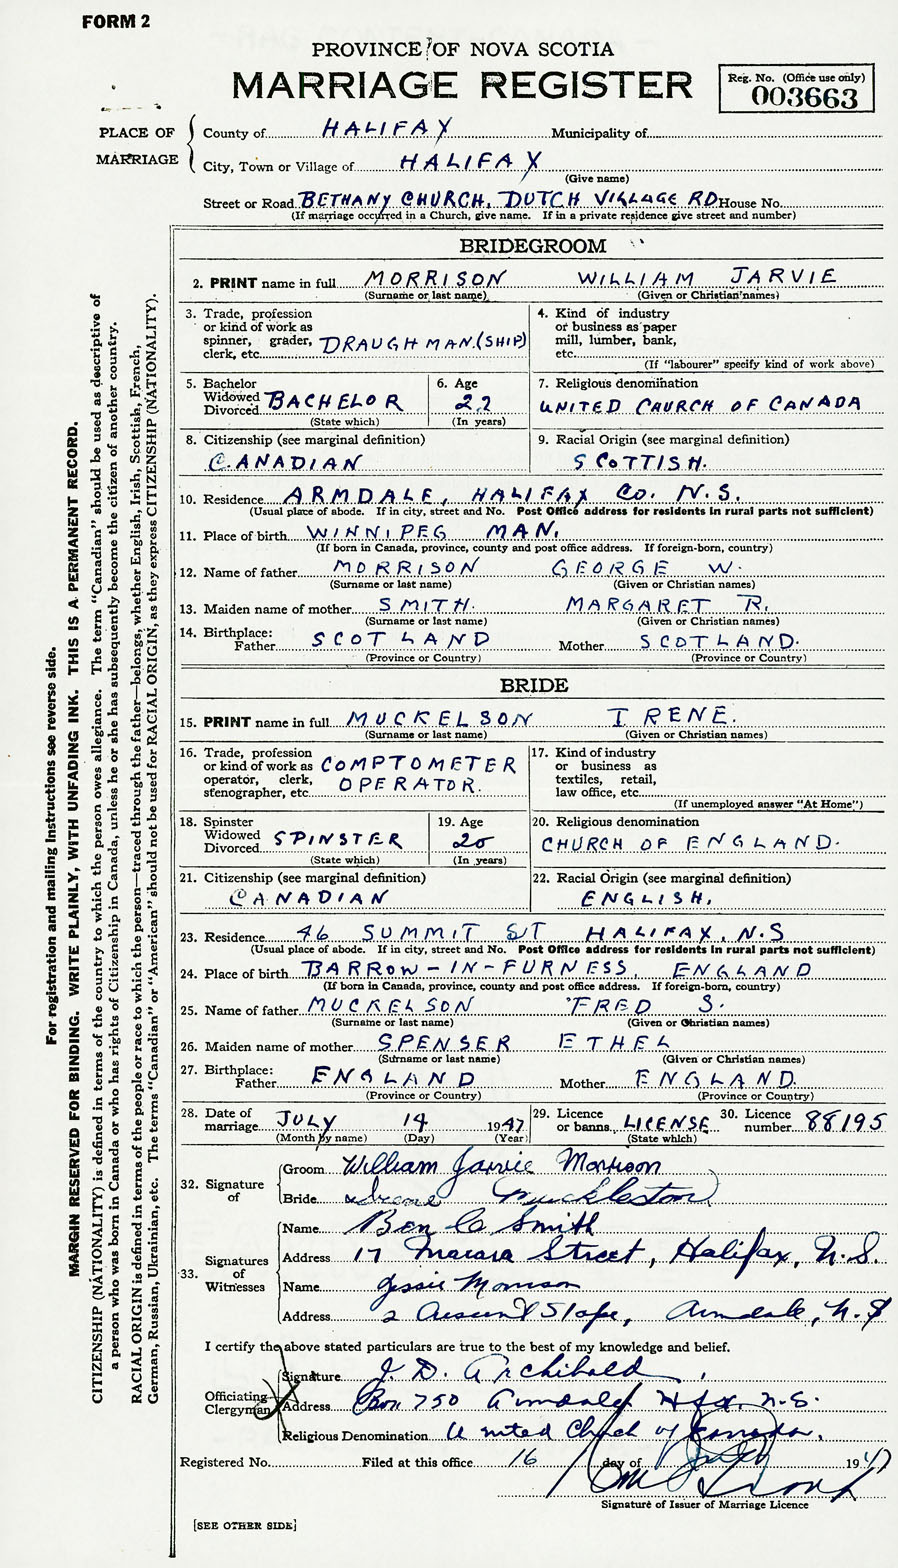 FORM 2
PROVINCE OF NOVA SCOTIA
MARRIAGE REGISTER
Reg. No. (Office use only)
003663
PLACE OF MARRIAGE
County of HALIFAX Municipality of
City, Town or Village of HALIFAX
(Give name)
Street or Road BETHANY CHURCH, DUTCH VILLAGE RD House No.
(If marriage occurred in a Church, give name. If in a private residence give street and number)
BRIDEGROOM
2. PRINT name in full MORRISON WILLIAM JARVIE
(Surname or last name) (Given or Christian names)
3. Trade, profession or kind of work as spinner, grader, clerk, etc. DRAUGHMAN (SHIP)
4. Kind of industry or business as paper mill, lumber, bank, etc.
(If "labourer" specify kind of work above)
5. Bachelor Widowed Divorced BACHELOR
(State which)
6. Age 22
(In years)
7. Religious denomination
UNITED CHURCH OF CANADA
8. Citizenship (see marginal definition)
CANADIAN
9. Racial Origin (see marginal definition)
SCOTTISH.
10. Residence ARMDALE, HALIFAX CO. N.S.
(Usual place of abode. If in city, street and No. Post Office address for residents in rural parts not sufficient)
11. Place of birth WINNIPEG MAN.
(If born in Canada, province, county and post office address. If foreign-born, country)
12. Name of father MORRISON GEORGE W.
(Surname or last name) (Given or Christian names)
13. Maiden name of mother SMITH. MARGARET R.
(Surname or last name) (Given or Christian names)
14. Birthplace: Father SCOTLAND Mother SCOTLAND.
(Province or Country) (Province or Country)
BRIDE
15. PRINT name in full MUCKELSON IRENE.
(Surname or last name) (Given or Christian names)
16. Trade, profession or kind of work as operator, clerk, stenographer, etc. COMPTOMETER OPERATOR.
17. Kind of industry or business as textiles, retail, law office, etc.
(If unemployed answer "At Home")
18. Spinster Widowed Divorced SPINSTER
(State which)
19. Age 20
(In years)
20. Religious denomination
CHURCH OF ENGLAND.
21. Citizenship (see marginal definition)
CANADIAN
22. Racial Origin (see marginal definition)
ENGLISH.
23. Residence 46 SUMMIT ST HALIFAX, N.S
(Usual place of abode. If in city, street and No. Post Office address for residents in rural parts not sufficient)
24. Place of birth BARROW-IN-FURNESS, ENGLAND
(If born in Canada, province, county and post office address. If foreign-born, country)
25. Name of father MUCKELSON FRED S.
(Surname or last name) (Given or Christian names)
26. Maiden name of mother SPENSER ETHEL
(Surname or last name) (Given or Christian names)
27. Birthplace: Father ENGLAND Mother ENGLAND.
(Province or Country) (Province or Country)
28. Date of marriage JULY 14 1947
(Month by name) (Day) (Year)
29. Licence or banns LICENSE
(State which)
30. Licence number 88195
32. Signature of
Groom William Jarvie Morrison
Bride Irene Muckleston
33. Signatures of Witnesses
Name Ben C Smith
Address 17 Macara Street, Halifax, N.S.
Name Jessie Morrison
Address 2 Slope, Armdale, N.S
I certify the above stated particulars are true to the best of my knowledge and belief.
Officiating Clergyman
Signature J. D. Archibald
Address Box 750 Armdale Hfx. N.S.
Religious Denomination United Church of Canada.
Registered No. Filed at this office 16 day of July 1947
Signature of Issuer of Marriage Licence
[SEE OTHER SIDE]
For registration and mailing instructions see reverse side.
MARGIN RESERVED FOR BINDING. WRITE PLAINLY, WITH UNFADING INK. THIS IS A PERMANENT RECORD.
CITIZENSHIP (NATIONALITY) is defined in terms of the country to which the person owes allegiance. The term "Canadian" should be used as descriptive of
a person who was born in Canada or who has rights of Citizenship in Canada, unless he or she has subsequently become the citizen of another country.
RACIAL ORIGIN is defined in terms of the people or race to which the person—traced through the father—belongs, whether English, Irish, Scottish, French,
German, Russian, Ukrainian, etc. The terms "Canadian" or "American" should not be used for RACIAL ORIGIN, as they express CITIZENSHIP (NATIONALITY).